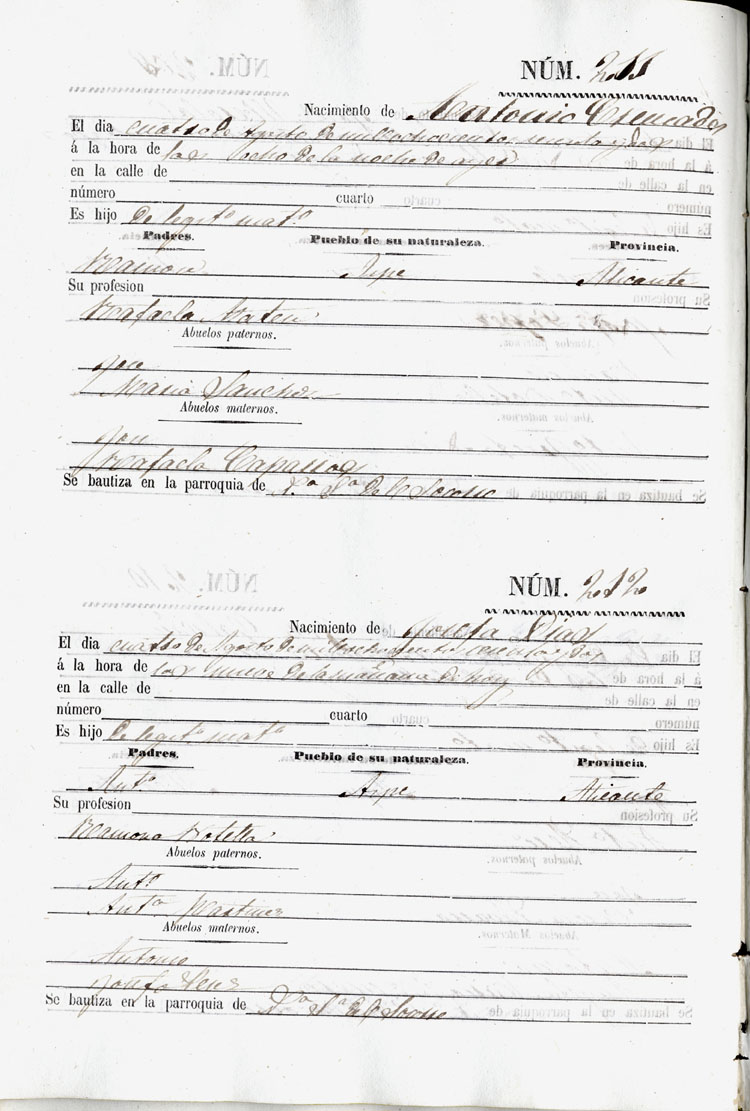 NÚM. 211
Nacimiento de Antonio Cremades
El dia cuatro de Agosto de mil ochocientos sesenta y dos
á la hora de las ocho de la noche de ayer
en la calle de
número cuarto
Es hijo de legit.º mat.º
Padres. Pueblo de su naturaleza. Provincia.
Ramon Aspe Alicante
Su profesion
Rafaela
Abuelos paternos.
Jose
Maria Sanchez
Abuelos maternos.
Jose
Rafaela
Se bautiza en la parroquia de N.ª S.ª del Socorro
NÚM. 212
Nacimiento de Josefa Diaz
El dia cuatro de Agosto de mil ochocientos sesenta y dos
á la hora de las nueve de la mañana de hoy
en la calle de
número cuarto
Es hijo de legit.º mat.º
Padres. Pueblo de su naturaleza. Provincia.
Ant.º Aspe Alicante
Su profesion
Ramona Botella
Abuelos paternos.
Ant.º
Ant.ª Martinez
Abuelos maternos.
Antonio
Josefa
Se bautiza en la parroquia de N.ª S.ª del Socorro